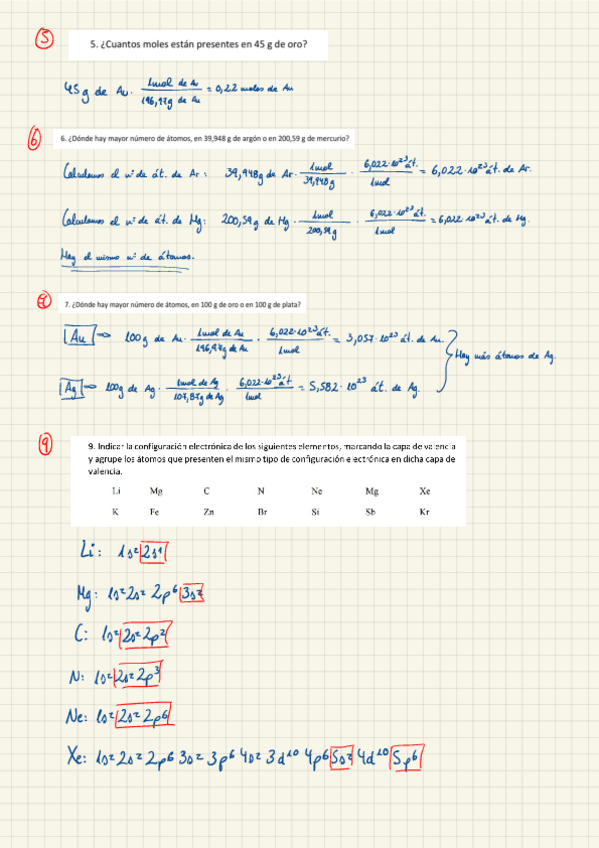 5
5. ¿Cuantos moles están presentes en 45 g de oro?
45 g de Au · 1mol de Au / 196,97g de Au = 0,22 moles de Au
6
6. ¿Dónde hay mayor número de átomos, en 39,948 g de argón o en 200,59 g de mercurio?
Calculamos el nº de át. de Ar: 39,948g de Ar · 1mol / 39,948g · 6,022·10²³ át. / 1mol = 6,022·10²³ át. de Ar.
Calculamos el nº de át. de Hg: 200,59 g de Hg · 1mol / 200,59g · 6,022·10²³ át. / 1mol = 6,022·10²³ át. de Hg.
Hay el mismo nº de átomos.
7. ¿Dónde hay mayor número de átomos, en 100 g de oro o en 100 g de plata?
Au ⇒ 100g de Au · 1mol de Au / 196,97g de Au · 6,022·10²³ át. / 1mol = 3,057·10²³ át. de Au.
Hay más átomos de Ag.
Ag ⇒ 100g de Ag · 1mol de Ag / 107,87g de Ag · 6,022·10²³ át. / 1mol = 5,582·10²³ át. de Ag.
9
9. Indicar la configuración electrónica de los siguientes elementos, marcando la capa de valencia
y agrupe los átomos que presenten el mismo tipo de configuración electrónica en dicha capa de
valencia.
Li Mg C N Ne Mg Xe
K Fe Zn Br Si Sb Kr
Li: 1s² 2s¹
Mg: 1s² 2s² 2p⁶ 3s²
C: 1s² 2s² 2p²
N: 1s² 2s² 2p³
Ne: 1s² 2s² 2p⁶
Xe: 1s² 2s² 2p⁶ 3s² 3p⁶ 4s² 3d¹⁰ 4p⁶ 5s² 4d¹⁰ 5p⁶